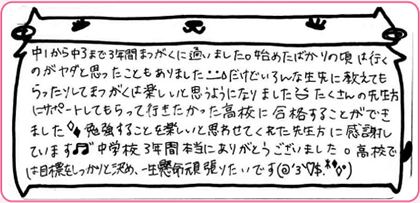 中1から中3まで3年間まつがくに通いました。始めたばかりの頃は行く
のがヤダと思ったこともありました¨だけどいろんな先生に教えても
らったりしてまつがくは楽しいと思うようになりました たくさんの先生方
にサポートしてもらって行きたかった高校に合格することができ
ました 勉強することを楽しいと思わせてくれた先生方に感謝し
ています♬中学校3年間本当にありがとうございました。高校で
は目標をしっかりと決め、一生懸命頑張りたいです